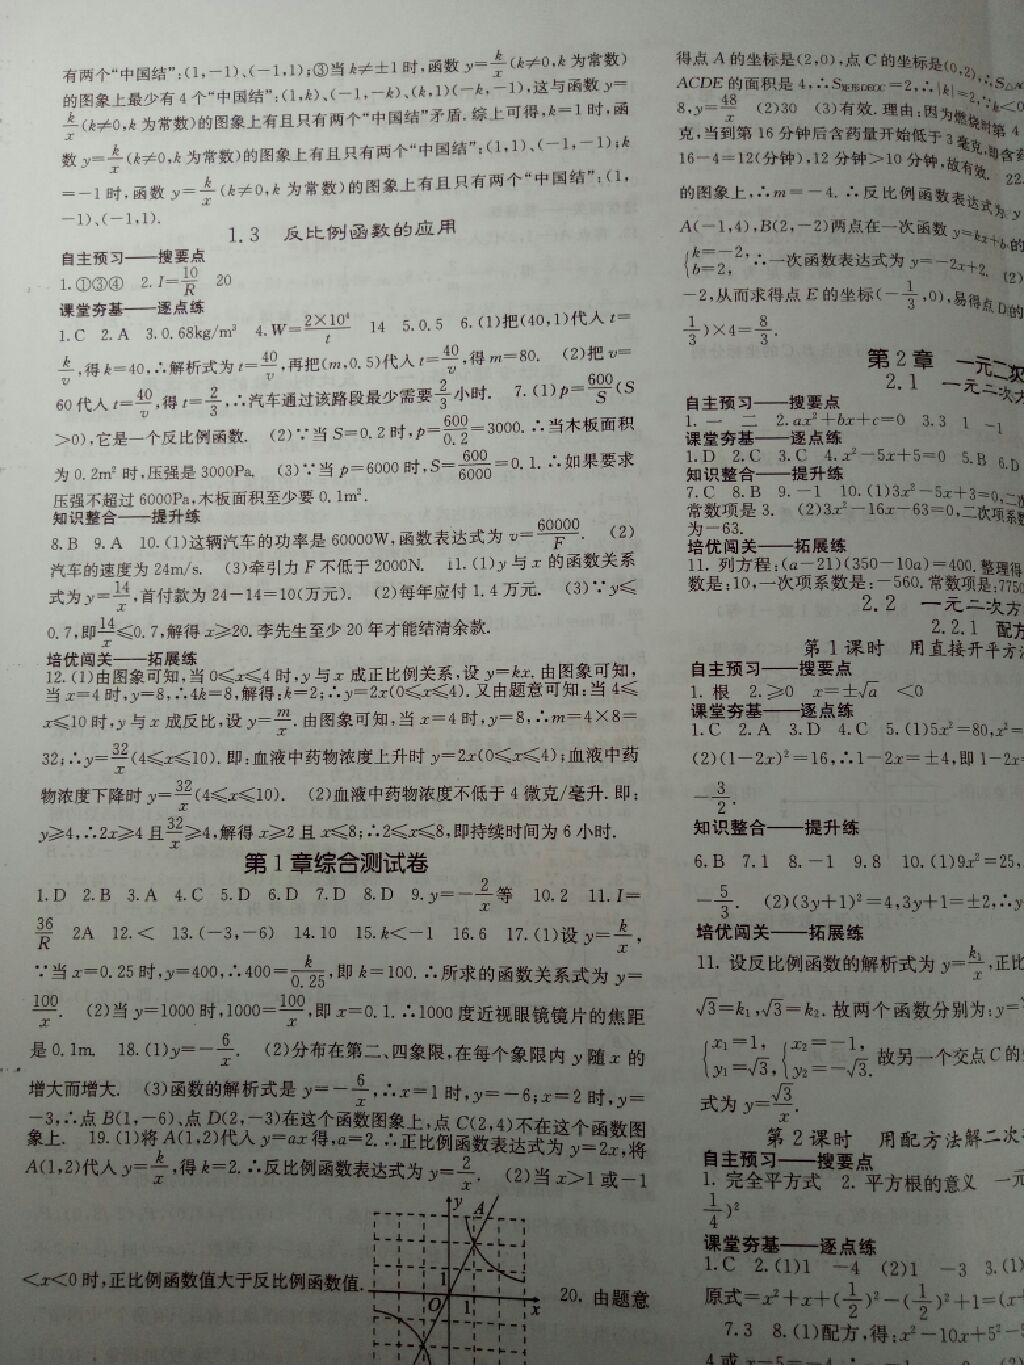 有两个“中国结”:(1,-1)、(-1,1);③当k≠±1时,函数y=k/x(k≠0,k为常数)
的图象上最少有4个“中国结”:(1,k)、(-1,-k)、(k,1)(-k,-1),这与函数y=
k/x(k≠0,k为常数)的图象上有且只有两个“中国结”矛盾.综上可得,k=1时,函
数y=k/x(k≠0,k为常数)的图象上有且只有两个“中国结”:(1,1)、(-1,-1);k
=-1时,函数y=k/x(k≠0,k为常数)的图象上有且只有两个“中国结”:(1,
-1)、(-1,1).
1.3 反比例函数的应用
自主预习——搜要点
1.①③④ 2.I=10/R 20
课堂夯基——逐点练
1.C 2.A 3.0.68kg/m³ 4.W=2×10⁴/t 14 5.0.5 6.(1)把(40,1)代入t=
k/v,得k=40,∴解析式为t=40/v,再把(m,0.5)代入t=40/v,得m=80. (2)把v=
60代入t=40/v,得t=2/3,∴汽车通过该路段最少需要2/3小时. 7.(1)p=600/S(S
>0),它是一个反比例函数. (2)∵当S=0.2时,p=600/0.2=3000.∴当木板面积
为0.2m²时,压强是3000Pa. (3)∵当p=6000时,S=600/6000=0.1.∴如果要求
压强不超过6000Pa,木板面积至少要0.1m².
知识整合——提升练
8.B 9.A 10.(1)这辆汽车的功率是60000W,函数表达式为v=60000/F. (2)
汽车的速度为24m/s. (3)牵引力F不低于2000N. 11.(1)y与x的函数关系
式为y=14/x,首付款为24-14=10(万元). (2)每年应付1.4万元. (3)∵y≤
0.7,即14/x≤0.7,解得x≥20.李先生至少20年才能结清余款.
培优闯关——拓展练
12.(1)由图象可知,当0≤x≤4时,y与x成正比例关系,设y=kx.由图象可知,
当x=4时,y=8,∴4k=8,解得:k=2;∴y=2x(0≤x≤4).又由题意可知:当4≤
x≤10时,y与x成反比,设y=m/x.由图象可知,当x=4时,y=8,∴m=4×8=
32;∴y=32/x(4≤x≤10).即:血液中药物浓度上升时y=2x(0≤x≤4);血液中药
物浓度下降时y=32/x(4≤x≤10). (2)血液中药物浓度不低于4微克/毫升.即:
y≥4,∴2x≥4且32/x≥4,解得x≥2且x≤8;∴2≤x≤8,即持续时间为6小时.
第1章综合测试卷
1.D 2.B 3.A 4.C 5.D 6.D 7.D 8.D 9.y=-2/x等 10.2 11.I=
36/R 2A 12.< 13.(-3,-6) 14.10 15.k<-1 16.6 17.(1)设y=k/x,
∵当x=0.25时,y=400,∴400=k/0.25,即k=100.∴所求的函数关系式为y=
100/x. (2)当y=1000时,1000=100/x,即x=0.1.∴1000度近视眼镜镜片的焦距
是0.1m. 18.(1)y=-6/x. (2)分布在第二、四象限,在每个象限内y随x的
增大而增大. (3)函数的解析式是y=-6/x,∴x=1时,y=-6;x=2时,y=
-3,∴点B(1,-6)、点D(2,-3)在这个函数图象上,点C(2,4)不在这个函数图
象上. 19.(1)将A(1,2)代入y=ax得,a=2.∴正比例函数表达式为y=2x,将
A(1,2)代入y=k/x,得k=2.∴反比例函数表达式为y=2/x. (2)当x>1或-1
y
A
<x<0时,正比例函数值大于反比例函数值.
1
O 1 x
20. 由题意
得点A的坐标是(2,0),点C的坐标是(0,2),∴S
ACDE的面积是4,∴S矩形DEOC=2,∴|k|=2,∵k<0
8.y=48/x (2)30 (3)有效.理由:因为燃烧时第4
克,当到第16分钟后含药量开始低于3毫克,即含药
16-4=12(分钟),12分钟>10分钟,故有效. 22.
的图象上,∴m=-4.∴反比例函数表达式为y
A(-1,4),B(2,-2)两点在一次函数y=kx+b的
{k=-2, b=2, ∴一次函数表达式为y=-2x+2. (2)
-2,从而求得点E的坐标(-1/3,0),易得点D的
1/3)×4=8/3.
第2章 一元二次
2.1 一元二次方
自主预习——搜要点
1.一 二 2.ax²+bx+c=0 3.3 1 -1
课堂夯基——逐点练
1.D 2.C 3.C 4.x²-5x+5=0 5.B 6.D
知识整合——提升练
7.C 8.B 9.-1 10.(1)3x²-5x+3=0,二次
常数项是3. (2)3x²-16x-63=0,二次项系数
为-63.
培优闯关——拓展练
11. 列方程:(a-21)(350-10a)=400.整理得
数是:10,一次项系数是:-560.常数项是:7750
2.2 一元二次方
2.2.1 配方
第1课时 用直接开平方法
自主预习——搜要点
1. 根 2.≥0 x=±√a <0
课堂夯基——逐点练
1.C 2.A 3.D 4.C 5.(1)5x²=80,x²=
(2)(1-2x)²=16,∴1-2x=±4,即1-2x=
-3/2.
知识整合——提升练
6.B 7.1 8.-1 9.8 10.(1)9x²=25,
-5/3. (2)(3y+1)²=4,3y+1=±2,∴y
培优闯关——拓展练
11. 设反比例函数的解析式为y=k₁/x,正比
√3=k₁,√3=k₂.故两个函数分别为:y=
{x₁=1, y₁=√3, {x₂=-1, y₂=-√3. 故另一个交点C的
式为y=√3/x.
第2课时 用配方法解二次
自主预习——搜要点
1. 完全平方式 2. 平方根的意义 一元
1/4)²
课堂夯基——逐点练
1.C 2.(1)1 -4 (2)1 -3 3.(1)
原式=x²+x+(1/2)²-(1/2)²+1=(x+
7.3 8.(1)配方,得:x²-10x+5²-5